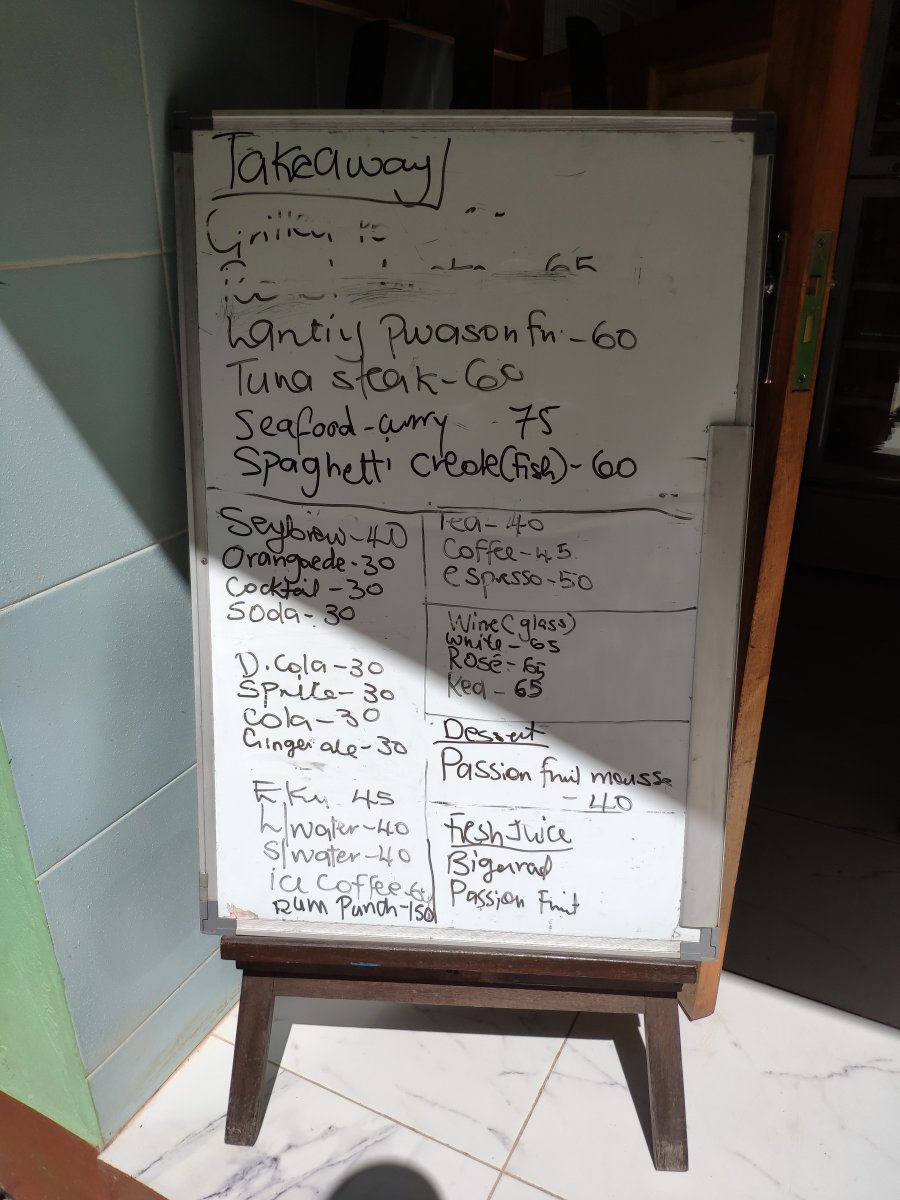 Takeaway
65
Lantiy pwason fri - 60
Tuna steak - 60
Seafood - curry 75
Spaghetti creole (fish) - 60
Seybrew - 40
Orangaede - 30
Cocktail - 30
Soda - 30
D. Cola - 30
Sprite - 30
Cola - 30
Ginger ale - 30
Eku 45
L/water - 40
S/water - 40
ice Coffee
Rum Punch - 150
Tea - 40
Coffee - 45
espresso - 50
Wine (glass)
white - 65
Rosé - 65
Red - 65
Dessert
Passion fruit mousse
- 40
Fresh Juice
Bigarrad
Passion Fruit